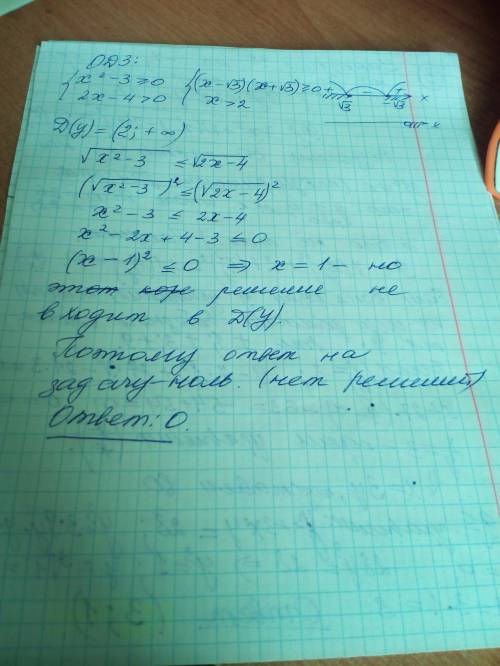 ОДЗ:
{ x² - 3 ≥ 0 { (x - √3)(x + √3) ≥ 0 + - + √3 √3 x
2x - 4 > 0 x > 2 x
D(y) = (2; + ∞)
√x² - 3 ≤ √2x - 4
(√x² - 3)² ≤ (√2x - 4)²
x² - 3 ≤ 2x - 4
x² - 2x + 4 - 3 ≤ 0
(x - 1)² ≤ 0 ⇒ x = 1 - но
решение не
входит в D(y).
Поэтому ответ на
задачу - ноль. (нет решений)
Ответ: 0.